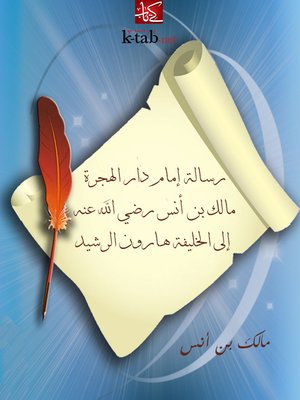 كتاب
k-tab.net
رسالة إمام دار الهجرة
مالك بن أنس رضي الله عنه
إلى الخليفة هارون الرشيد
مالك بن أنس